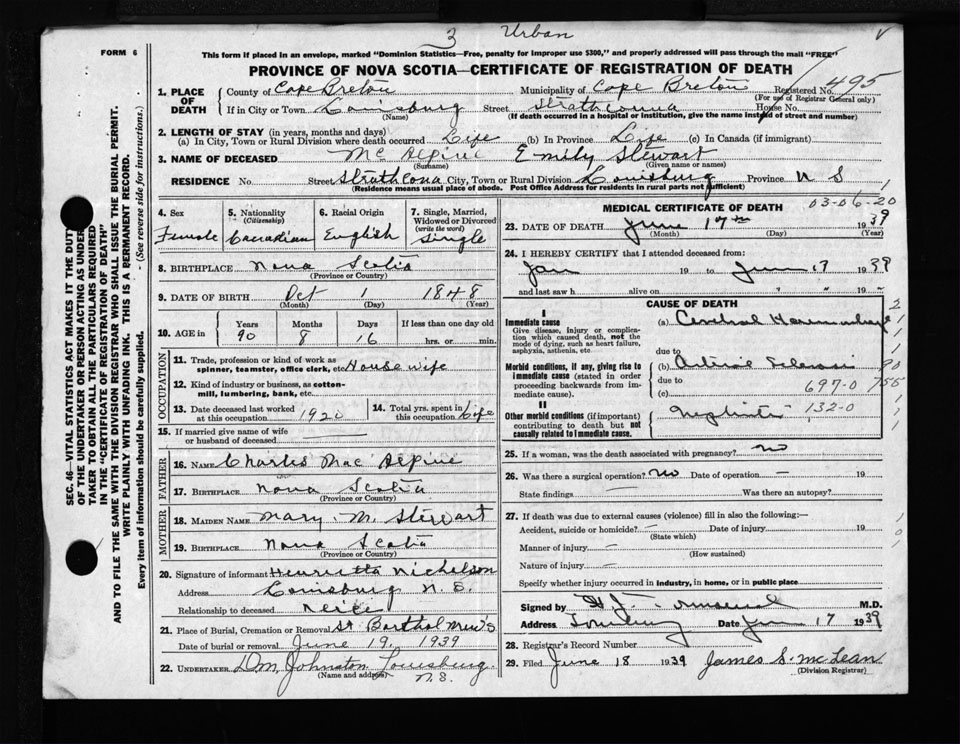 3 Urban
FORM 6
This form if placed in an envelope, marked "Dominion Statistics—Free, penalty for improper use $300," and properly addressed will pass through the mail "FREE"
PROVINCE OF NOVA SCOTIA—CERTIFICATE OF REGISTRATION OF DEATH
1. PLACE OF DEATH
County of Cape Breton Municipality of Cape Breton Registered No. 495
(For use of Registrar General only)
If in City or Town Louisburg Street Strathconna House No.
(Name) (If death occurred in a hospital or institution, give the name instead of street and number)
2. LENGTH OF STAY (in years, months and days)
(a) In City, Town or Rural Division where death occurred Life (b) In Province Life (c) In Canada (if immigrant)
3. NAME OF DECEASED Mc Alpine Emily Stewart
(Surname) (Given name or names)
RESIDENCE No. Street Strathcona City, Town or Rural Division Louisburg Province N S
(Residence means usual place of abode. Post Office Address for residents in rural parts not sufficient)
SEC. 46—VITAL STATISTICS ACT MAKES IT THE DUTY
OF THE UNDERTAKER OR PERSON ACTING AS UNDER
TAKER TO OBTAIN ALL THE PARTICULARS REQUIRED
IN THE "CERTIFICATE OF REGISTRATION OF DEATH"
AND TO FILE THE SAME WITH THE DIVISION REGISTRAR WHO SHALL ISSUE THE BURIAL PERMIT.
WRITE PLAINLY WITH UNFADING INK. THIS IS A PERMANENT RECORD.
Every item of information should be carefully supplied. - (See reverse side for instructions.)
4. Sex 5. Nationality 6. Racial Origin 7. Single, Married,
(Citizenship) Widowed or Divorced
(write the word)
Female Canadian English Single
8. BIRTHPLACE Nova Scotia
(Province or Country)
9. DATE OF BIRTH Oct 1 1848
(Month) (Day) (Year)
10. AGE in Years Months Days If less than one day old
90 8 16 hrs. or min.
OCCUPATION
11. Trade, profession or kind of work as
spinner, teamster, office clerk, etc House wife
12. Kind of industry or business, as cotton-
mill, lumbering, bank, etc.
13. Date deceased last worked
at this occupation 1920
14. Total yrs. spent in
this occupation Life
15. If married give name of wife
or husband of deceased
FATHER
16. NAME Charles Mac Alpine
17. BIRTHPLACE Nova Scotia
(Province or Country)
MOTHER
18. MAIDEN NAME Mary M. Stewart
19. BIRTHPLACE Nova Scotia
(Province or Country)
20. Signature of informant Henrietta Nicholson
Address Louisburg N. S.
Relationship to deceased Neice
21. Place of Burial, Cremation or Removal St Barthalmew's
Date of burial or removal June 19, 1939
22. UNDERTAKER D.M. Johnston Louisburg.
(Name and address) N.S.
MEDICAL CERTIFICATE OF DEATH
03-06-20
23. DATE OF DEATH June 17th 1939
(Month) (Day) (Year)
24. I HEREBY CERTIFY that I attended deceased from:
Jan 19 to June 17 1939
and last saw h alive on " " 19 "
CAUSE OF DEATH
I
Immediate cause (a) Cerebral Haemorrhage
Give disease, injury or complica-
tion which caused death, not the
mode of dying, such as heart failure,
asphyxia, asthenia, etc
due to
Morbid conditions, if any, giving rise to
immediate cause (stated in order
proceeding backwards from im-
mediate cause).
(b) Arterio Sclerosis 90
due to 697-0 755
(c)
II
Other morbid conditions (if important)
contributing to death but not
causally related to immediate cause.
Nephritis 132-0
25. If a woman, was the death associated with pregnancy? no
26. Was there a surgical operation? No Date of operation — 19
State findings — Was there an autopsy?
27. If death was due to external causes (violence) fill in also the following:—
Accident, suicide or homicide? — Date of injury 19
(State which)
Manner of injury —
(How sustained)
Nature of injury —
Specify whether injury occurred in industry, in home, or in public place
Signed by M.D.
Address Date Jun 17 1939
28. Registrar's Record Number
29. Filed June 18 1939 James S. McLean
(Division Registrar)